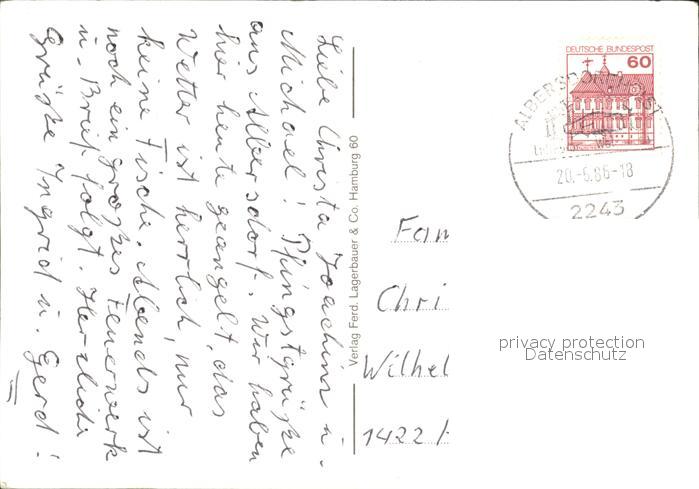 Liebe Christa Joachim u.
Michael! Pfingstgrüße
aus Albersdorf. Wir haben
hier heute geangelt, das
Wetter ist herrlich, nur
keine Fische. Abends ist
noch ein großes Feuerwerk
u. Brief folgt. Herzliche
Grüße Ingrid u. Gerd!
Verlag Ferd. Lagerbauer & Co. Hamburg 60
DEUTSCHE BUNDESPOST
60
ALBERSDORF, HOLST
20.-5.86-18
2243
Fam
Chri
Wilhel
1422
privacy protection
Datenschutz